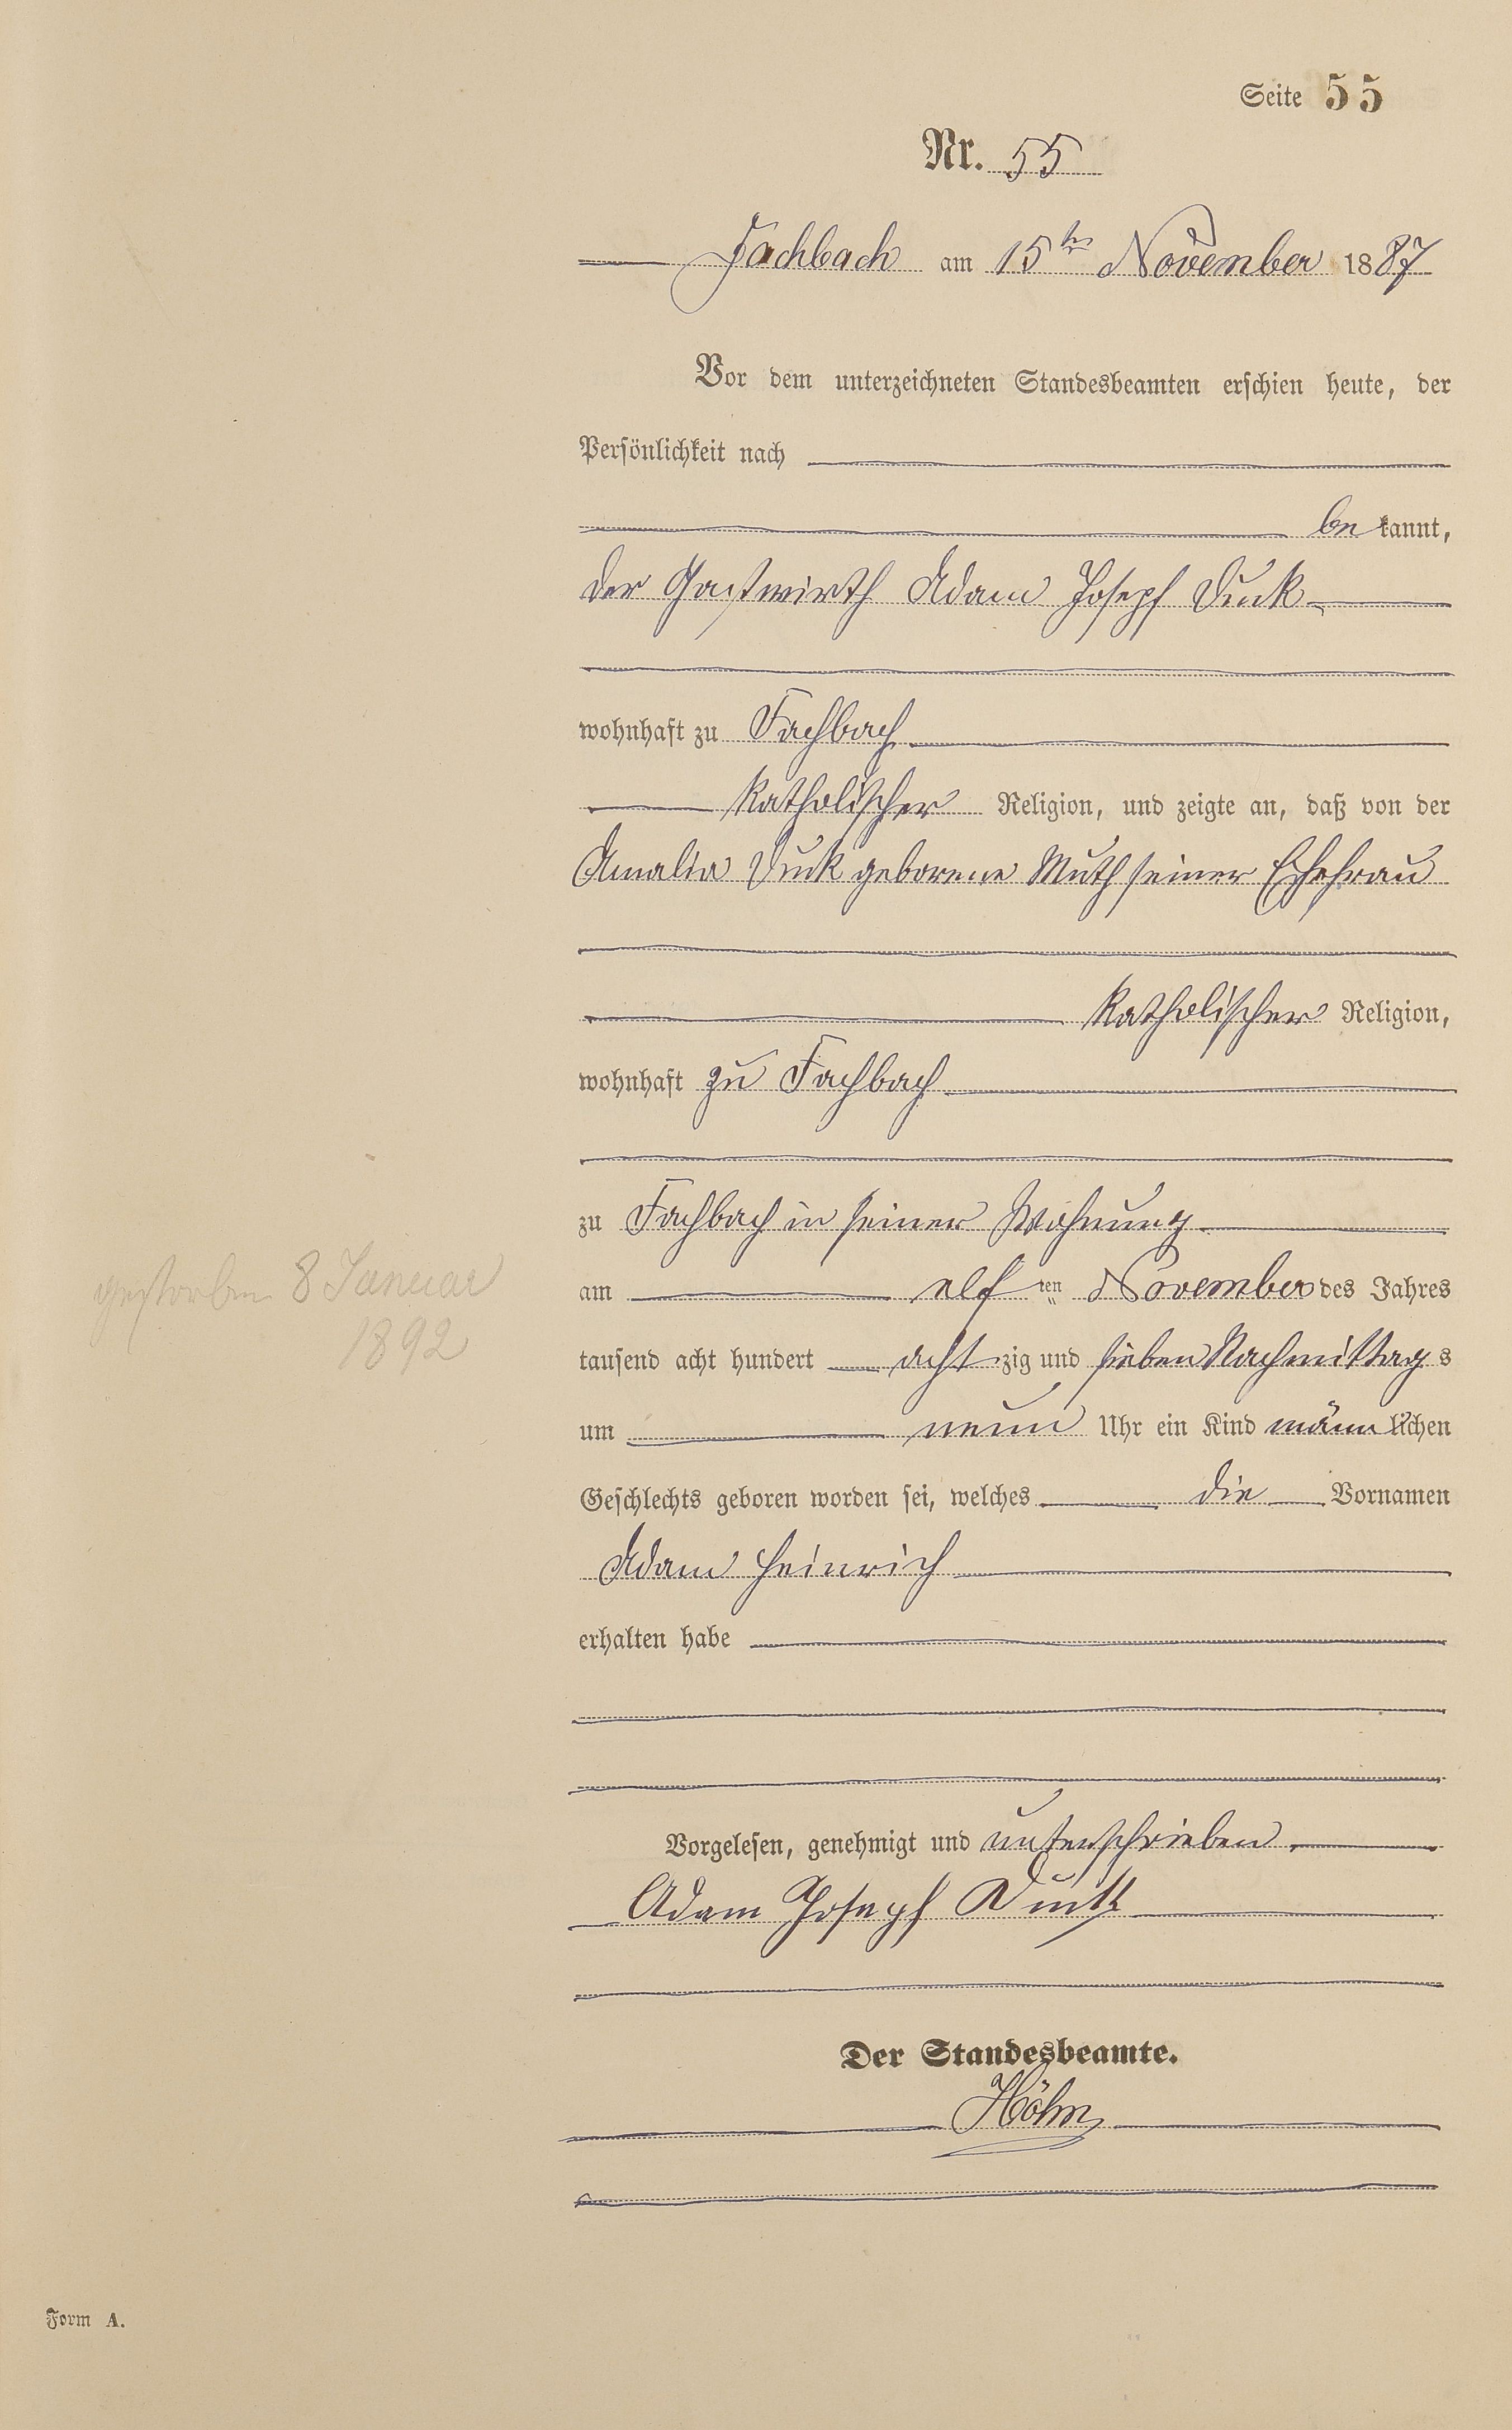 Seite 55
Nr. 55
Fachbach am 15ten November 1887
Vor dem unterzeichneten Standesbeamten erschien heute, der
Persönlichkeit nach
bekannt,
der Gastwirth Adam Joseph Duck
wohnhaft zu Fachbach
katholischer Religion, und zeigte an, daß von der
Amalia Duck geborene Muth seiner Ehefrau
katholischer Religion,
wohnhaft zu Fachbach
zu Fachbach in seiner Wohnung
am elf ten November des Jahres
tausend acht hundert achtzig und sieben Nachmittags
um neun Uhr ein Kind männlichen
Geschlechts geboren worden sei, welches die Vornamen
Adam Heinrich
erhalten habe
Vorgelesen, genehmigt und unterschrieben.
Adam Joseph
Der Standesbeamte.
Höhn
gestorben 8 Januar
1892
Form A.